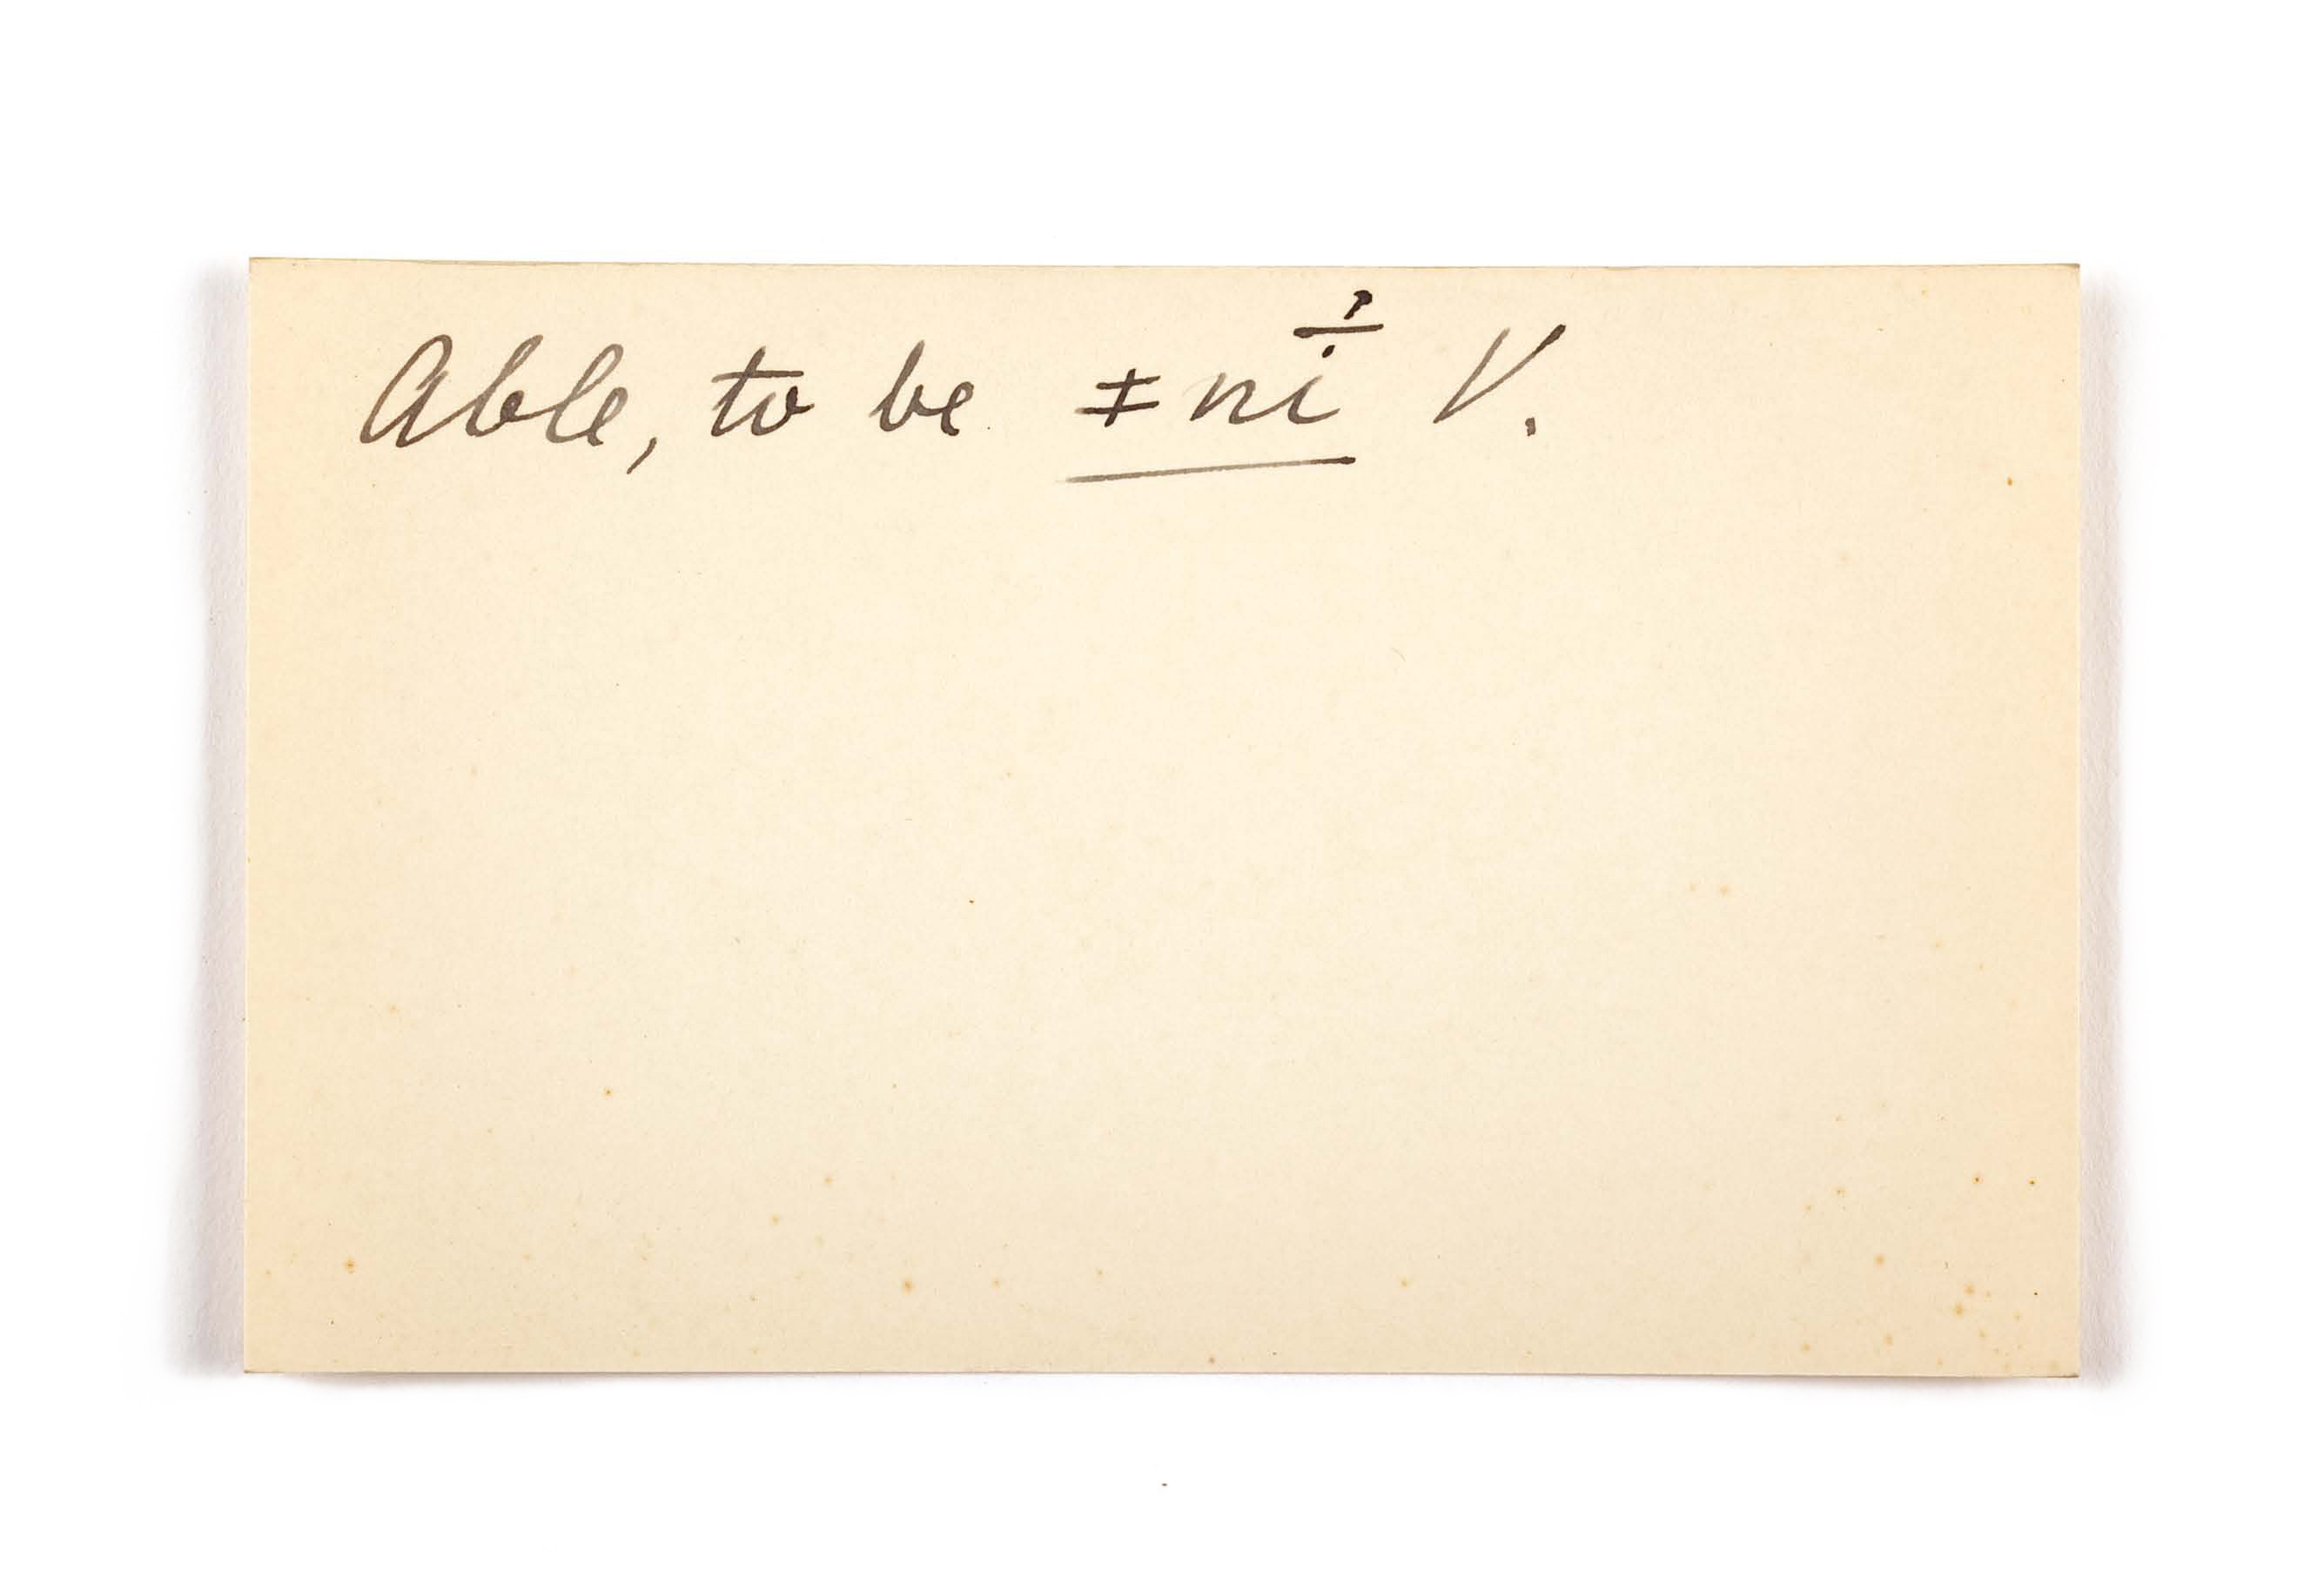 Able, to be ǂnī́ V.